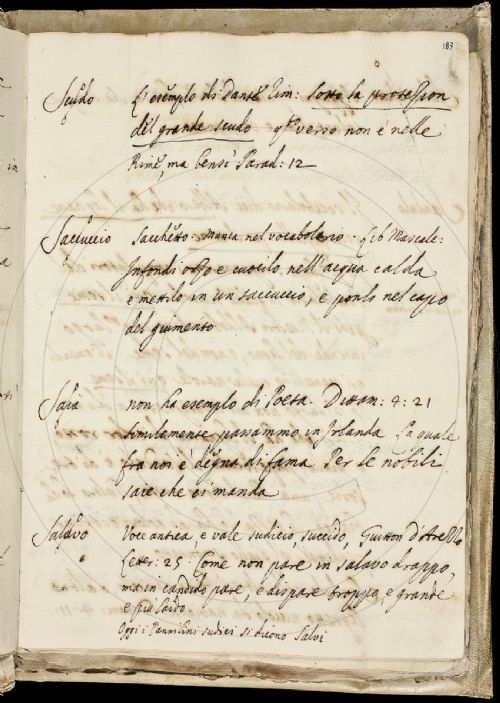 183
Scudo L'esempio di Dante Rim: sotto la protession
del grande scudo qto verso non è nelle
Rime, ma bensì Parad: 12
Saccuccio Sacchetto. manca nel vocabolario. Lib Mascalc:
Infondi orzo e cuocilo nell'acqua calda
e mettilo in un saccuccio, e ponlo nel capo
del giumento
Saia non ha esempio di Poeta. Dittam: 4: 21
similemente passammo in Irlanda La quale
fra noi è degna di fama Per le nobili
saie che ci manda
Salavo Voce antica e vale sudicio, succido, Guitton d'Arezzo
Letter: 25. Come non pare in salavo drappo,
ma in candido pare, e dispare troppo, e grande
e più laido
Oggi i Pannilini sudici si dicono Salvi